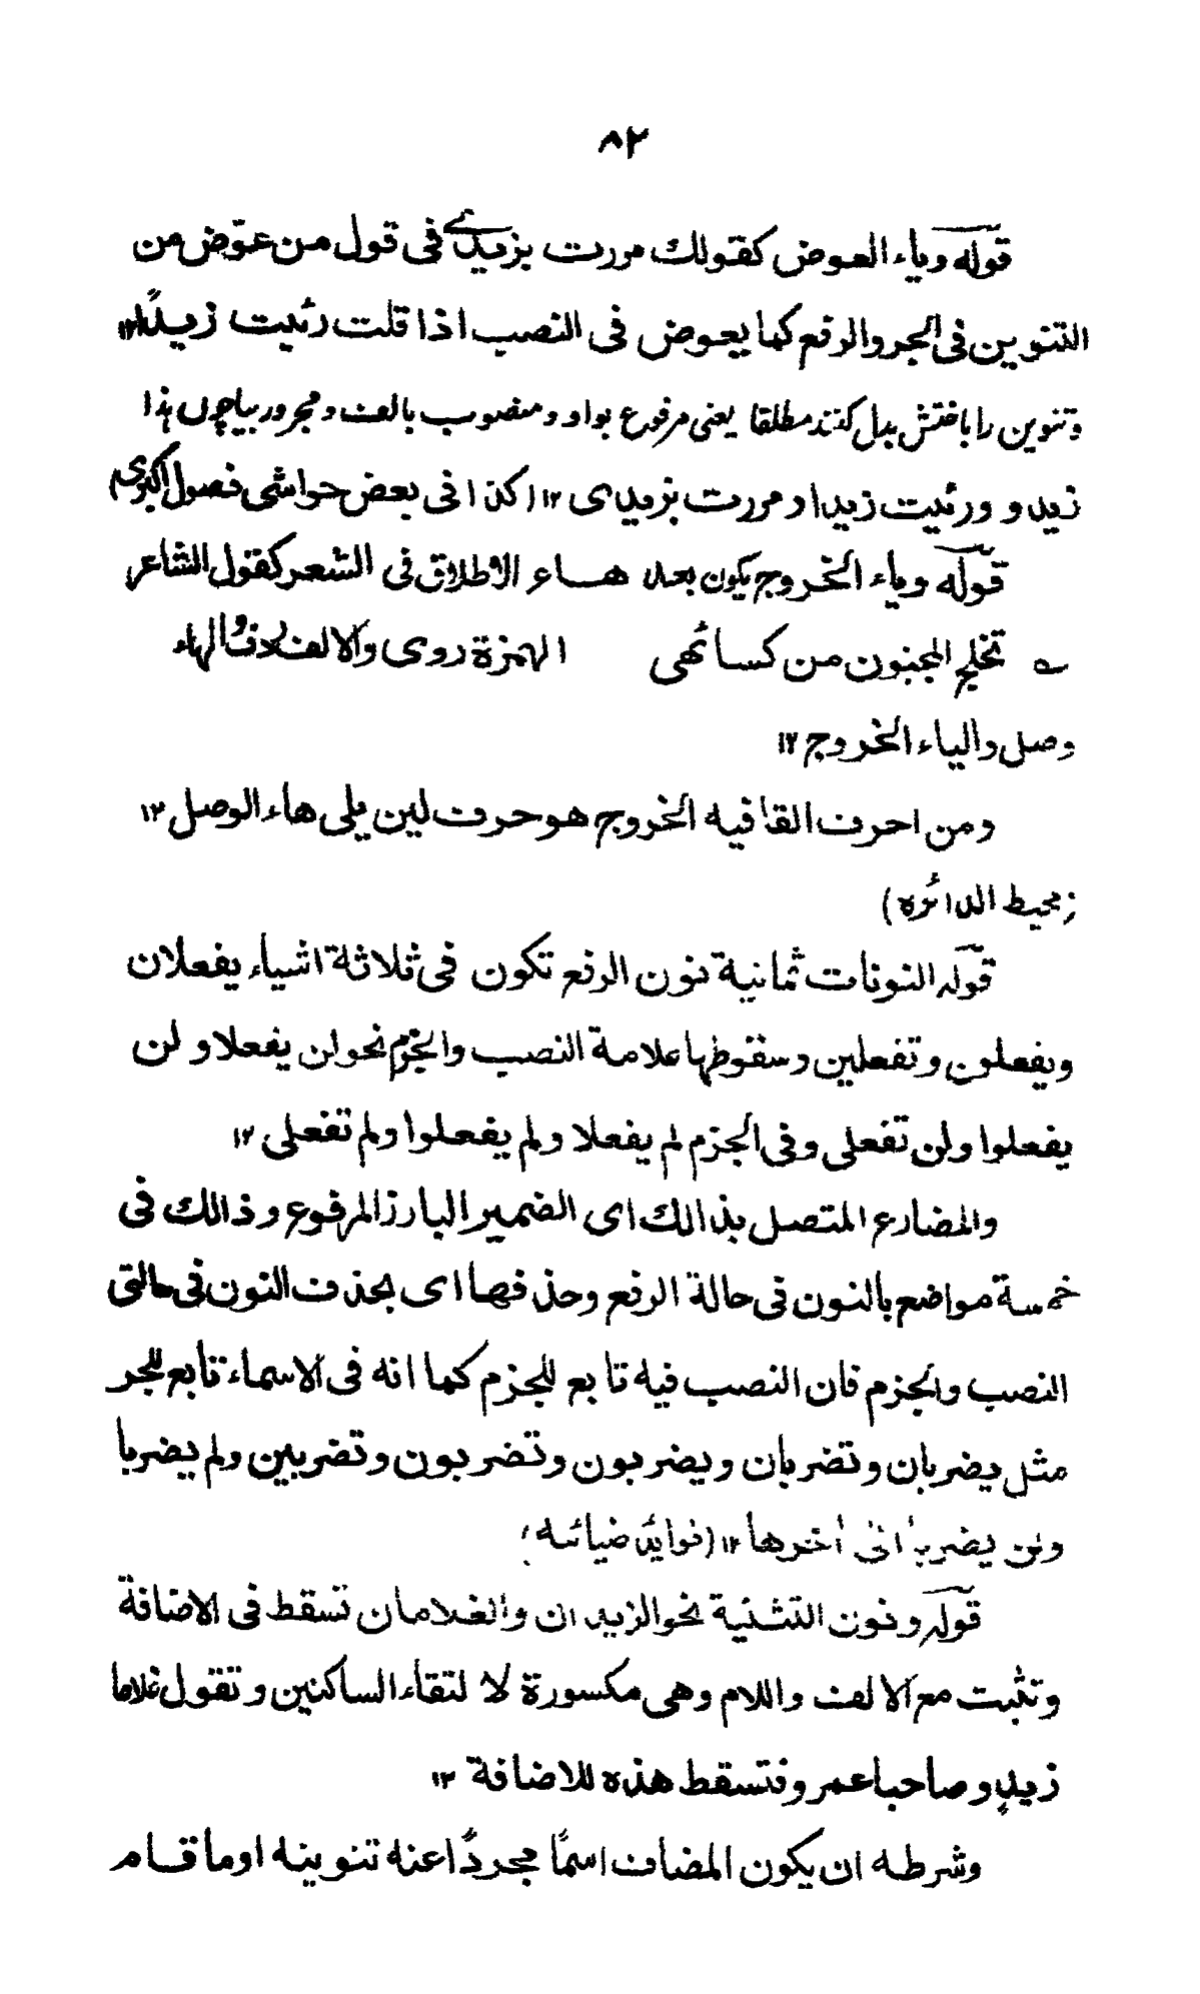 ٨٢
قوله وياء العوض كقولك مررت بزيدي فى قول من عوّض من
التنوين فى الجر والرفع كما يعوض فى النصب اذا قلت رئيت زيدًا ١٢
وتنوين را باختش بدل كنند مطلقا يعنى مرفوع بواو و منصوب بالف و مجرور بياچوں ہذا
زيدو ورئيت زيدا و مررت بزيدى ١٢ (كذا فى بعض حواشى فصول اكبرى)
قوله وياء الخروج يكون بعد هاء الاطلاق فى الشعر كقول الشاعر
؎ تخلج المجنون من كسائهى الهمزة روى والالف ردف والهاء
وصل والياء الخروج ١٢
ومن احرف القافيه الخروج هو حرف لين يلى هاء الوصل ١٢
(محيط الدائرة)
قوله النونات ثمانية نون الرفع تكون فى ثلاثة اشياء يفعلان
ويفعلون وتفعلين وسقوطها علامة النصب والجزم نحو لن يفعلا و لن
يفعلوا ولن تفعلى وفى الجزم لم يفعلا ولم يفعلوا ولم تفعلى ١٢
والمضارع المتصل بذالك اى الضمير البارز المرفوع وذالك فى
خمسة مواضع بالنون فى حالة الرفع وحذفها اى بحذف النون فى حالتى
النصب والجزم فان النصب فيه تابع للجزم كما انه فى الاسماء تابع للجر
مثل يضربان وتضربان ويضربون وتضربون وتضربين ولم يضربا
ولن يضربا الى أخرها ١٢ (فوايد ضيائيه)
قوله ونون التثنية نحو الزيدان والغلامان تسقط فى الاضافة
وتثبت مع الالف واللام وهى مكسورة لا لتقاء الساكنين وتقول غلاما
زيدٍ و صاحبا عمرو فتسقط هذه للاضافة ١٢
وشرطه ان يكون المضاف اسمًا مجردًا عنه تنوينه او ما قام